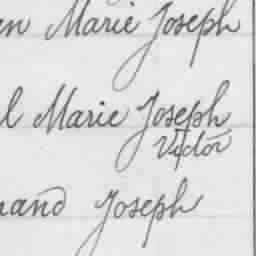 en Marie Joseph
l Marie Joseph
Victor
nand Joseph